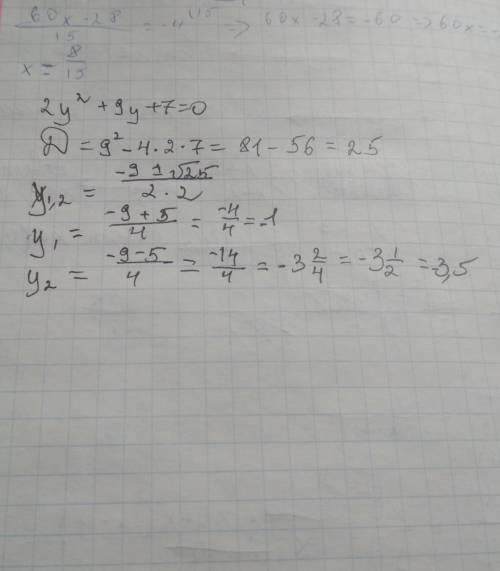 (60x - 28)/15 = -4 ⇒ 60x - 28 = -60 ⇒ 60x = -
x = 8/15
2y² + 9y + 7 = 0
D = 9² - 4 · 2 · 7 = 81 - 56 = 25
y₁,₂ = (-9 ± √25)/(2 · 2)
y₁ = (-9 + 5)/4 = -4/4 = -1
y₂ = (-9 - 5)/4 = -14/4 = -3 2/4 = -3 1/2 = -3,5